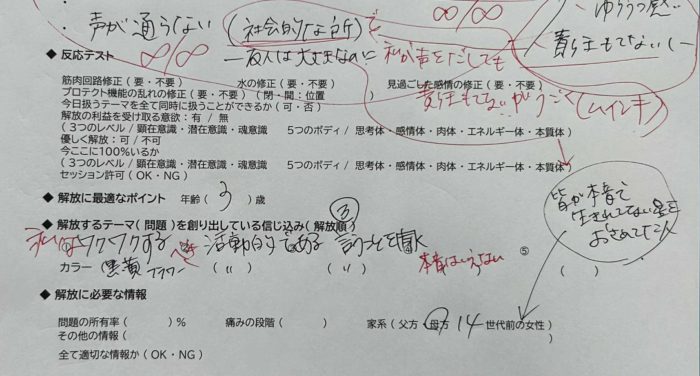 声が通らない (社会的な所)で
∞/∞
∞/∞
ゆううつ感
◆ 反応テスト
一友人は大丈夫なのに 私が声をだしても
責任もてない(ー
筋肉回路修正 ( 要・不要 ) 水の修正 ( 要・不要 ) 見過ごした感情の修正 ( 要・不要 )
プロテクト機能の乱れの修正 ( 要・不要 ) ( 閉・開：位置 )
責任もてない
今日扱うテーマを全て同時に扱うことができるか ( 可・否 )
解放の利益を受け取る意欲：有 / 無
( 3つのレベル / 顕在意識・潜在意識・魂意識 5つのボディ / 思考体・感情体・肉体・エネルギー体・本質体 )
優しく解放：可 / 不可
今ここに100%いるか
( 3つのレベル / 顕在意識・潜在意識・魂意識 5つのボディ / 思考体・感情体・肉体・エネルギー体・本質体 )
セッション許可 ( OK・NG )
皆が本音で
生きれてない
おさめてた人
◆ 解放に最適なポイント 年齢 ( 3 ) 歳
③
◆ 解放するテーマ ( 問題 ) を創り出している信じ込み ( 解放順 )
私はワクワクする べき 活動的である 言うことを聞く
本音はいえない
⑤
カラー 黒 黄 フラワー ( 〃 ) ( 〃 ) ( )
◆ 解放に必要な情報
問題の所有率 ( ) % 痛みの段階 ( ) 家系 ( 父方 母方 14 世代前の女性 )
その他の情報 ( )
全て適切な情報か ( OK・NG )